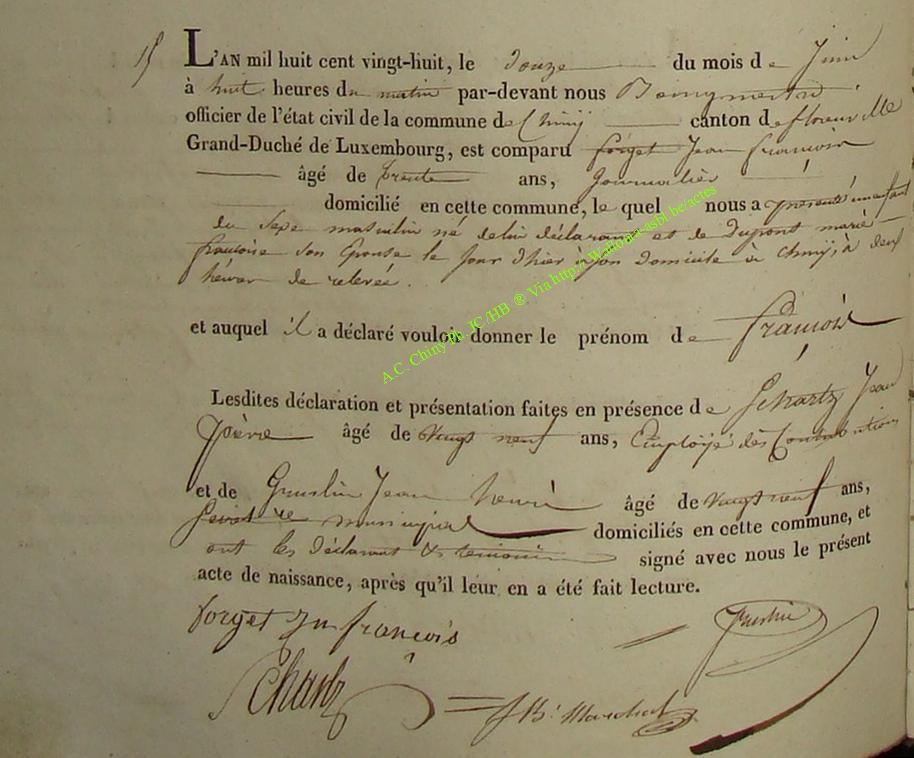 15 L'AN mil huit cent vingt-huit, le douze du mois de Juin
à huit heures du matin par-devant nous
officier de l'état civil de la commune de Chiny canton de florenville
Grand-Duché de Luxembourg, est comparu forget Jean françois
âgé de trente ans, Journalier
domicilié en cette commune, le quel nous a présenté un enfant
du Sexe masculin né de lui déclarant et de Dupont marie
françoise son Epouse le Jour d'hier à son domicile à Chiny, à deux
heures de relevée.
et auquel il a déclaré vouloir donner le prénom de françois
Lesdites déclaration et présentation faites en présence de Schartz Jean
pierre âgé de vingt neuf ans, Employé des Contributions
et de Jean henri âgé de vingt neuf ans,
municipal domiciliés en cette commune, et
ont les déclarant & temoins signé avec nous le présent
acte de naissance, après qu'il leur en a été fait lecture.
forget Jn françois
Schartz
A.C. Chiny Ph. JC/HB ® Via http://Wallonia-asbl.be/actes